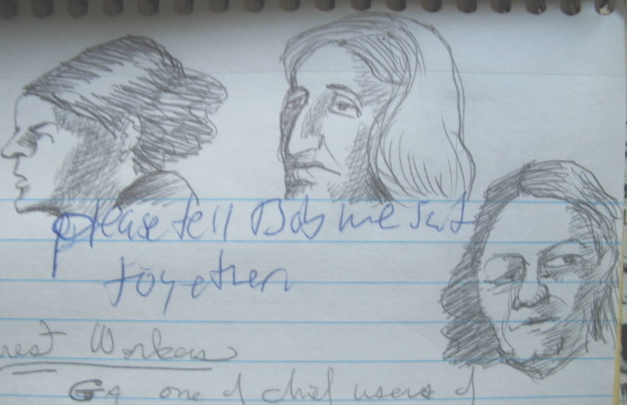 please tell Bob we sat
together
rest Workers
G4 one of chief users of